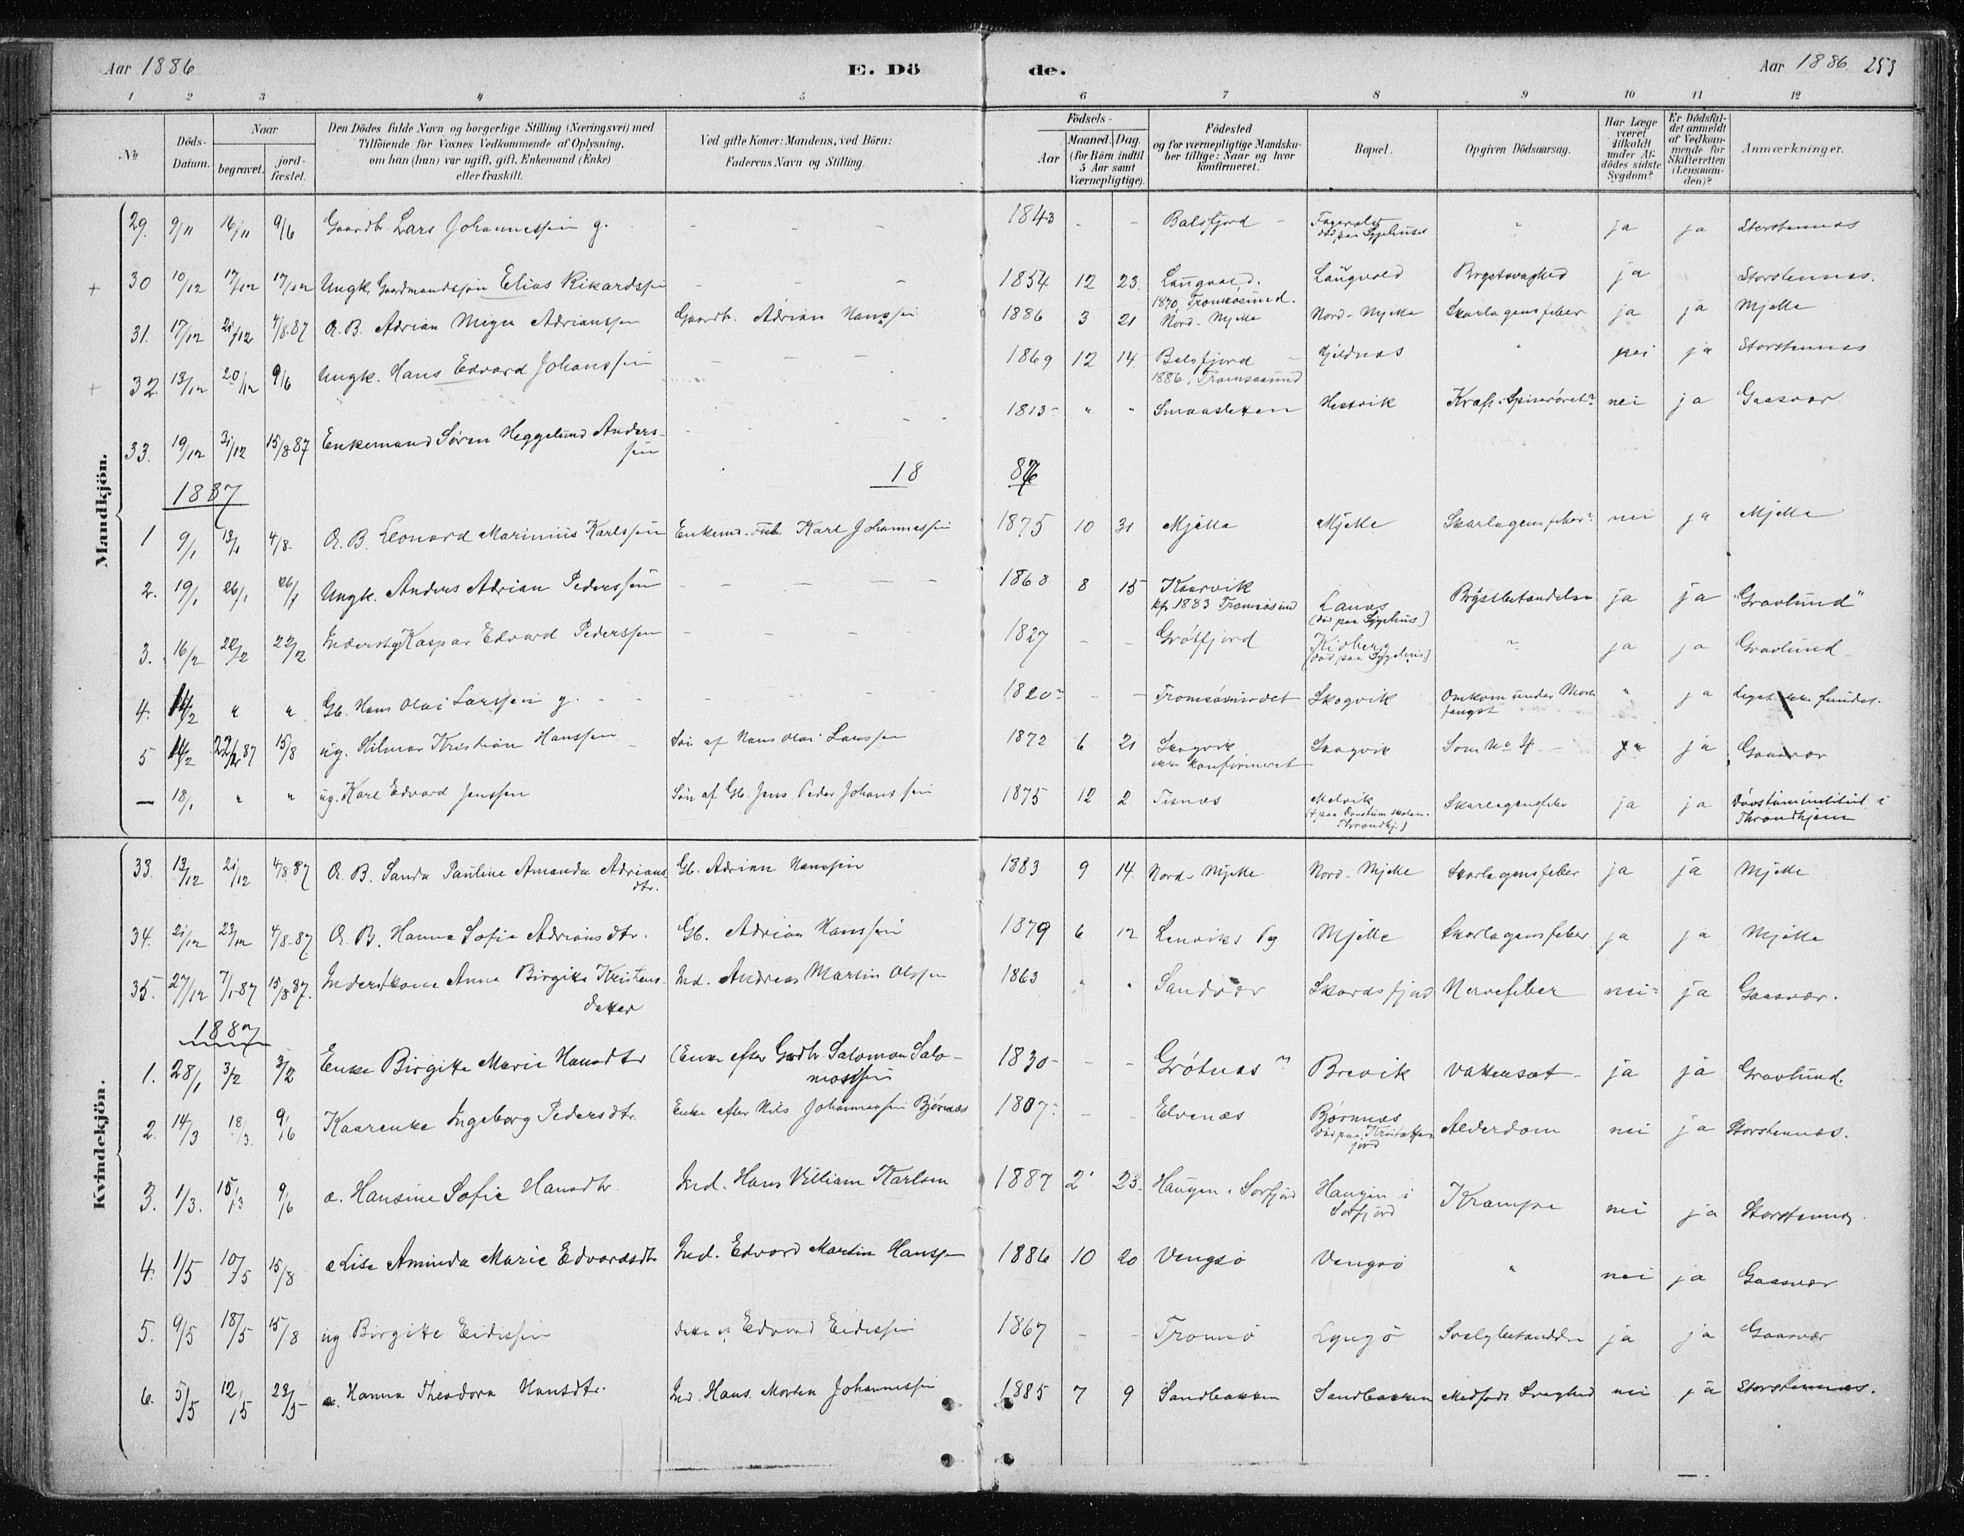 Aar 1886 E. Dö de. Aar 1886 253
1 2 3 4 5 6 7 8 9 10 11 12
№ Döds-Datum. Naar begravet. jord-fæstet. Den Dödes fulde Navn og borgerlige Stilling (Næringsvei) med Tilföiende for Voxnes Vedkommende af Oplysning, om han (hun) var ugift, gift, Enkemand (Enke) eller fraskilt. Ved gifte Koner: Mandens, ved Börn: Faderens Navn og Stilling. Födsels- Aar Maaned. Dag. (for Börn indtil 5 Aar samt Værnepligtige). Födested og for værnepligtige Mandska-ber tillige: Naar og hvor konfirmeret. Bopæl. Opgiven Dödsaarsag. Har Læge været tilkaldt under Af-dödes sidste Sygdom? Er Dödsfal-det anmeldt af Vedkom-mende for Skifteretten (Lensman-den)? Anmærkninger.
Mandkjön.
29. 9/11 16/11 9/6 Gaardb. Lars Johannessen g. - - - 1843 - - Balsfjord - død paa Sygehuset " ja ja Storstennæs
30 10/12 17/12 17/12 Ungk. Gaardmandssøn Elias Rikardssen - - - 1854 12 23. 1870, Tromsøsund. Langvold Brystsvaghed ja Storstennæs.
31. 17/12 21/12 4/8 87 Æ. B. Adrian Meyer Adrianssen Gaardb. Adrian Hanssen 1886 3 21 Nord-Mjelle Nord-Mjelle Skarlagensfeber ja ja Mjelle
32. 13/12 20/12 9/6 Ungk. Hans Edvard Johanssen - - - 1869 12 14. Balsfjord - 1886, Tromsøsund Kjeldnæs " nei ja Storstennæs
33. 19/12 31/12 15/8 87 Enkemand Søren Heggelund Anders-sen - - - 1813 - " " Hestvik Kræft i Spiserøret? nei ja Gaasvær
1887 18 87
1 9/1 13/1 4/8. Æ. B. Leonard Marinius Karlssen Enkemd. Karl Johannessen 1875 10 31 Mjelle Mjelle Skarlagensfeber? nei ja Mjelle
2. 19/1 26/1 26/1 Ungk. Anders Adrian Pederssen - - - 1868 8 15 Kaarvik kf. 1883 Tromsøsund Lanæs (død paa Sygehus) Brystbetændelse ja ja "Gravlund"
3. 16/2 22/2 22/2 Inderstg Kaspar Edvard Pederssen - - - 1827 - - Grøtfjord Kidberg (død paa Sygehus) " ja ja Gravlund
4. 14/2 " " Gb. Hans Olai Larssen g. - - 1820 - - Tromsøsundet Skogvik Omkom under fangst " ja Liget ikke fundet.
5 14/2 22/2 87 15/8 ug. Hilmar Kristian Hanssen Søn af Hans Olai Larssen 1872 6 21 Skogvik ikke konfirmeret Skogvik Som No 4 - ja Gaasvær
— 18/1 " " ug. Karl Edvard Jenssen Søn af Gb. Jens Peder Johanssen 1875 12 2 Tisnæs Malvik Skarlagensfeber ja ja Døvstuminstitut i Throndhjem
Kvindekjön.
33. 13/12 21/12 4/8 87 Æ. B. Sanda Pauline Amanda Adrians dtr. Gb. Adrian Hanssen 1883 9 14. Nord-Mjelle Nord-Mjelle Skarlagensfeber ja ja Mjelle
34. 21/12 23/12 4/8-87 Æ. B. Hanna Sofie Adriansdtr. Gb. Adrian Hanssen 1879 6 12 Lenviks Pg Mjelle Skarlagensfeber ja ja Mjelle
35. 27/12 7/1-87 15/8 87. Inderstkone Anna Birgitte Kristens-datter Ind. Andreas Martin Olssen 1863 " " Sandvær Skardsfjord Nervefeber nei ja Gaasvær.
1887
1. 28/1 3/2 3/2 Enke Birgitte Marie Hansdtr (Enke efter Gaardbr. Salomon Salo-monssen 1830 - - Grøtnæs Brevik Vattersot - ja ja Gravlund.
2. 14/3 18/3. 9/6 Kaarenke Ingeborg Pedersdtr. Enke efter Nils Johannessen Bjørnæs 1807. - - Elvenæs Bjørnnæs Alderdom nei ja Storstennæs.
3. 1/3. 15/3 9/6 æ. Hansine Sofie Hansdtr. Ind. Hans Villiam Karlsen 1887 2 23. Haugen i Sørfjord Haugen i Sørfjord Krampe nei ja Storstennæs
4. 1/5 10/5 15/8 æ Lise Aminda Marie Edvardsdtr Ind. Edvard Martin Hanssen 1886 10 20 Vengsø Vengsø " nei ja Gaasvær
5. 9/5 18/5 15/8 ug Birgitte Eidissen Datter af Edvard Eidissen 1867 - - Tromsø Lyngø ja ja Gaasvær
6. 5/5 12/5 23/5 æ. Hanna Theodora Hansdtr. Ind. Hans Morten Johannessen 1885 7 9 Sandbakken Sandbakken Medfødt Svaghed nei ja Storstennæs.